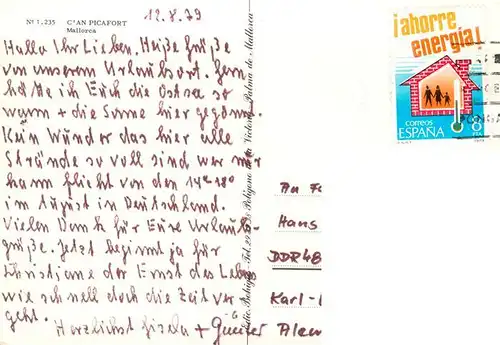 Nº 1.235
C'AN PICAFORT
Mallorca
12.8.79
Hallo Ihr Lieben. Heiße Grüße
von unserem Urlaubsort. Gern
hätte ich Euch die Ostsee so
warm + die Sonne hier gegönnt.
Kein Wunder das hier alle
Strände so voll sind wer nur
kann flieht von den 14°-18°
im August in Deutschland.
Vielen Dank für Eure Urlaubs-
grüße. Jetzt beginnt ja für
Christiane der Ernst des Lebens
wie schnell doch die Zeit ver
geht.
Herzlichst Gisela + Günter
Polígono de la Victoria - Palma de Mallorca
¡ahorre
energía!
correos
ESPAÑA
8
An Fa
Hans
DDR 48
Karl-